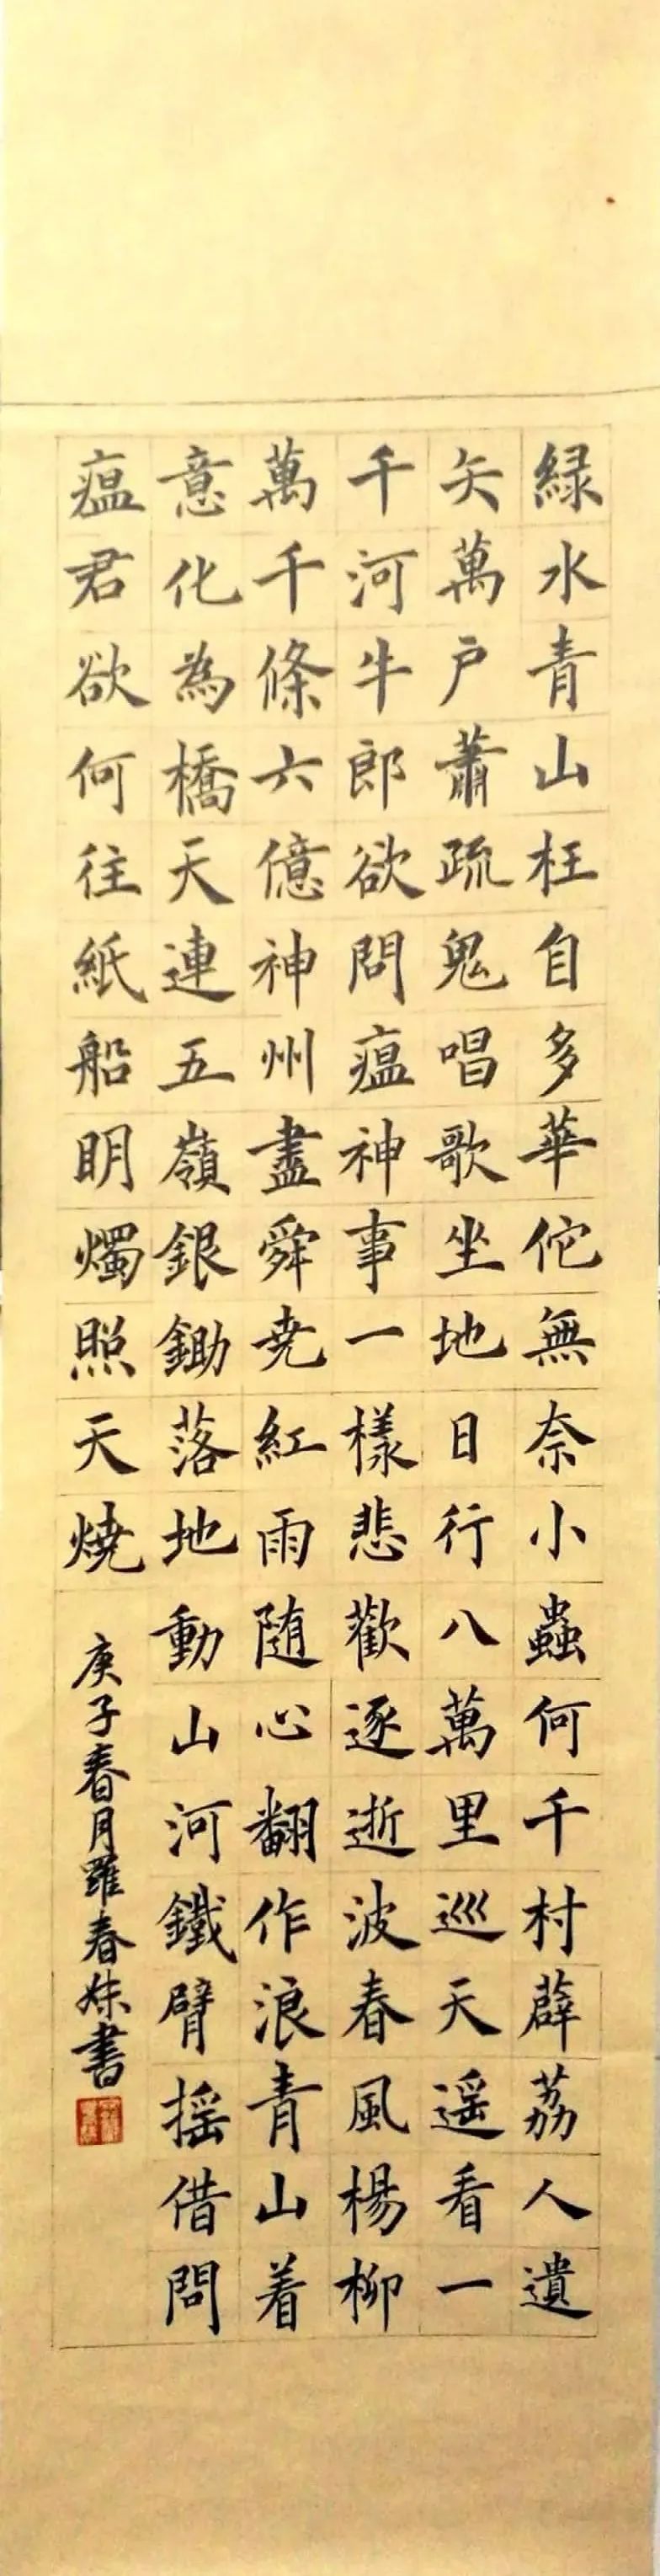 緑水青山枉自多華佗無奈小蟲何千村薜荔人遺
矢萬户蕭疏鬼唱歌坐地日行八萬里巡天遥看一
千河牛郎欲問瘟神事一樣悲歡逐逝波春風楊柳
萬千條六億神州盡舜尭紅雨随心翻作浪青山着
意化為橋天連五嶺銀鋤落地動山河鐵臂摇借問
瘟君欲何往紙船明燭照天燒
庚子春月羅春妹書